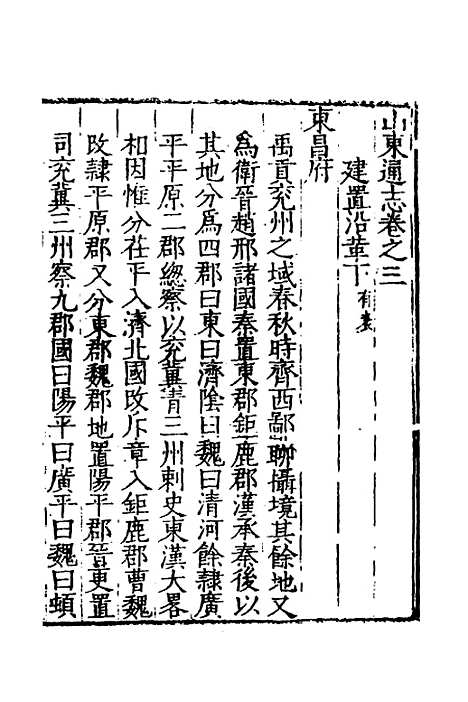 山東通志卷之三
建置沿革下有表
東昌府
禹貢兖州之域春秋時齊西鄙聊攝境其餘地又
為衛晉趙邢諸國秦置東郡鉅鹿郡漢承秦後以
其地分為四郡曰東曰濟陰曰魏曰清河餘隷廣
平平原二郡總察以兖冀青三州刺史東漢大畧
相因惟分茌平入濟北國改斥章入鉅鹿郡曹魏
改隷平原郡又分東郡魏郡地置陽平郡晉更置
司兖冀三州察九郡國曰陽平曰廣平曰魏曰頓